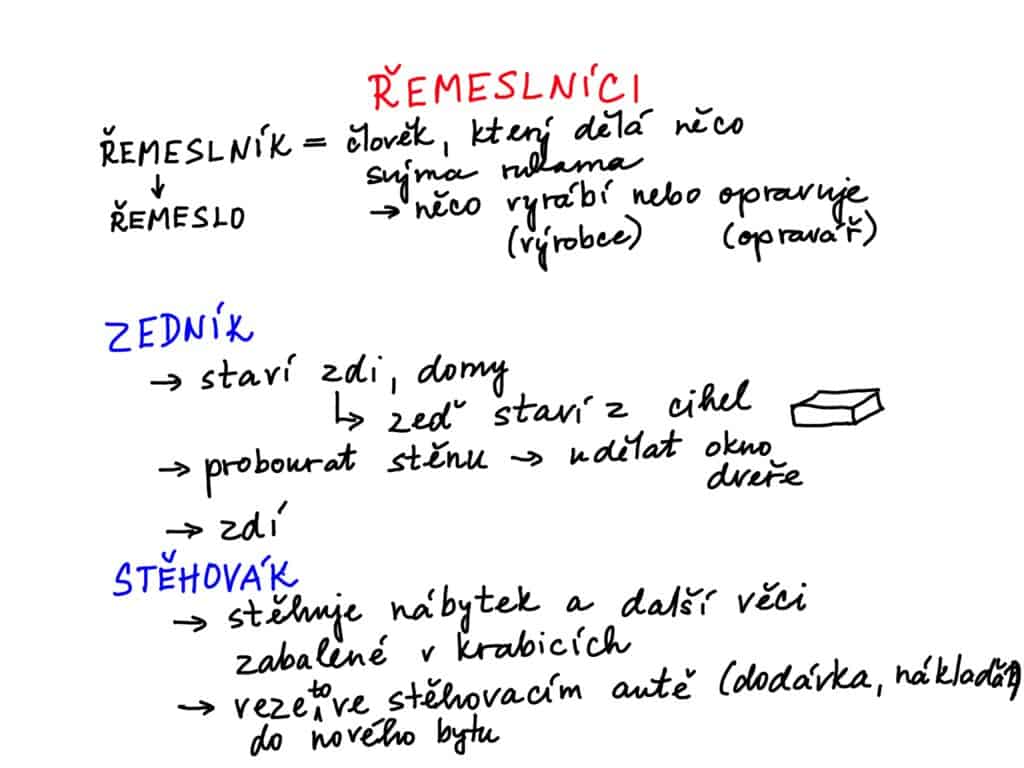 ŘEMESLNÍCI
ŘEMESLNÍK = člověk, který dělá něco
svýma rukama
↓
ŘEMESLO → něco vyrábí nebo opravuje
(výrobce) (opravář)
ZEDNÍK
→ staví zdi, domy
↳ zeď staví z cihel
→ probourat stěnu → udělat okno
dveře
→ zdí
STĚHOVÁK
→ stěhuje nábytek a další věci
zabalené v krabicích
→ veze to ve stěhovacím autě (dodávka, náklaďák)
do nového bytu